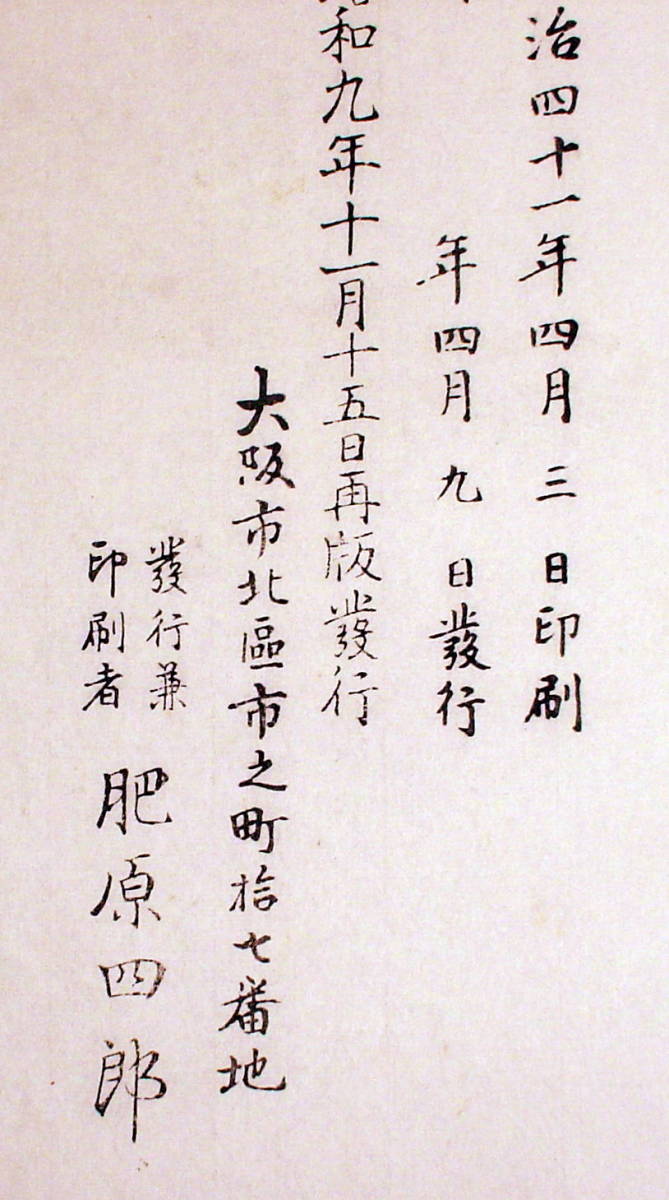 治四十一年四月三日印刷
年四月九日發行
昭和九年十一月十五日再版發行
大阪市北區市之町拾七番地
發行兼
印刷者
肥原四郎